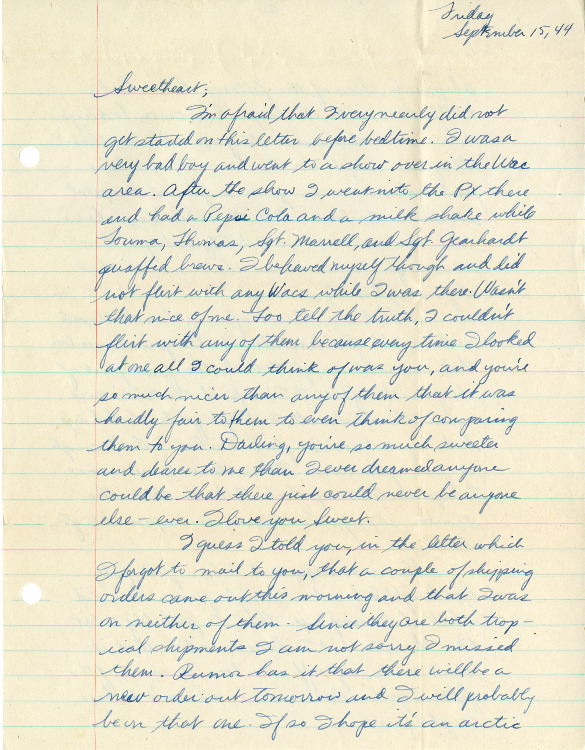 Friday
September 15, 44
Sweetheart;
I'm afraid that I very nearly did not
get started on this letter before bedtime. I was a
very bad boy and went to a show over in the Wac
area. After the show I went into the PX there
and had a Pepsi Cola and a milk shake while
Touma, Thomas, Sgt. Marvell, and Sgt. Gearhardt
quaffed brews. I behaved myself though and did
not flirt with any Wacs while I was there. Wasn't
that nice of me. Too tell the truth, I couldn't
flirt with any of them because every time I looked
at one all I could think of was you, and you're
so much nicer than any of them that it was
hardly fair to them to even think of comparing
them to you. Darling, you're so much sweeter
and dearer to me than I ever dreamed anyone
could be that there just could never be anyone
else - ever. I love you Sweet.
I guess I told you, in the letter which
I forgot to mail to you, that a couple of shipping
orders came out this morning and that I was
on neither of them. Since they are both trop-
ical shipments I am not sorry I missed
them. Rumor has it that there will be a
new order out tomorrow and I will probably
be on that one. If so I hope it's an arctic